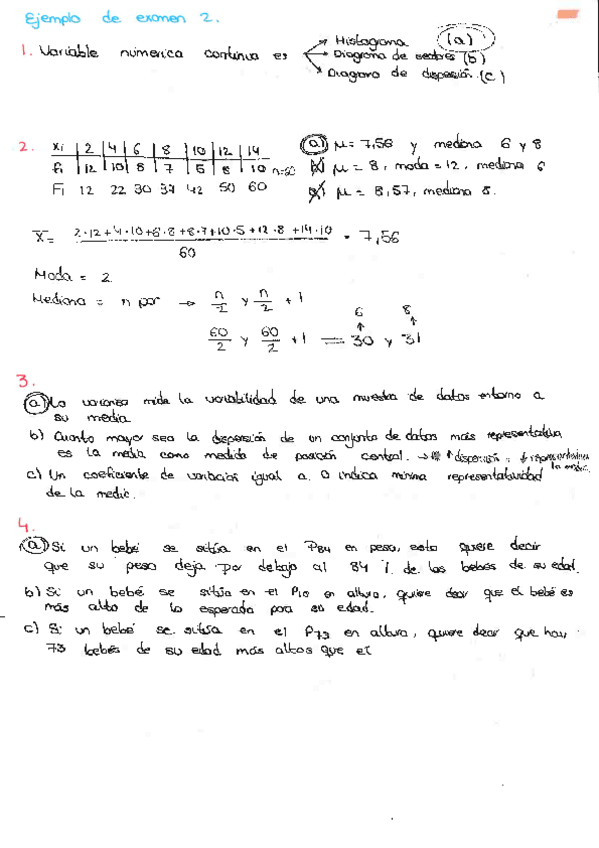 Ejemplo de examen 2.
1. Variable numerica continua es → Histograma (a)
→ Diagrama de sectores (b)
→ Diagrama de dispersión (c)
2. xi | 2 | 4 | 6 | 8 | 10 | 12 | 14
fi | 12 | 10 | 8 | 7 | 5 | 8 | 10 n=60
Fi 12 22 30 37 42 50 60
a) μ = 7,56 y mediana 6 y 8
b) μ = 8, moda = 12, mediana 6
c) μ = 8,57, mediana 8.
x̄ = 2·12+4·10+6·8+8·7+10·5+12·8+14·10 / 60 = 7,56
Moda = 2
Mediana = n par → n/2 y n/2 + 1
6 8
60/2 y 60/2 + 1 = 30 y 31
3.
a) La varianza mide la variabilidad de una muestra de datos entorno a
su media
b) Cuanto mayor sea la dispersión de un conjunto de datos más representativa
es la media como medida de posición central. → ↑ dispersión = ↓ representativa
la media.
c) Un coeficiente de variación igual a 0 indica minima representatividad
de la media.
4.
a) Si un bebé se sitúa en el P84 en peso, esto quiere decir
que su peso deja por debajo al 84 % de los bebés de su edad.
b) Si un bebé se sitúa en el P10 en altura, quiere decir que el bebé es
más alto de lo esperado para su edad.
c) Si un bebé se sitúa en el P73 en altura, quiere decir que hay
73 bebés de su edad más altos que el